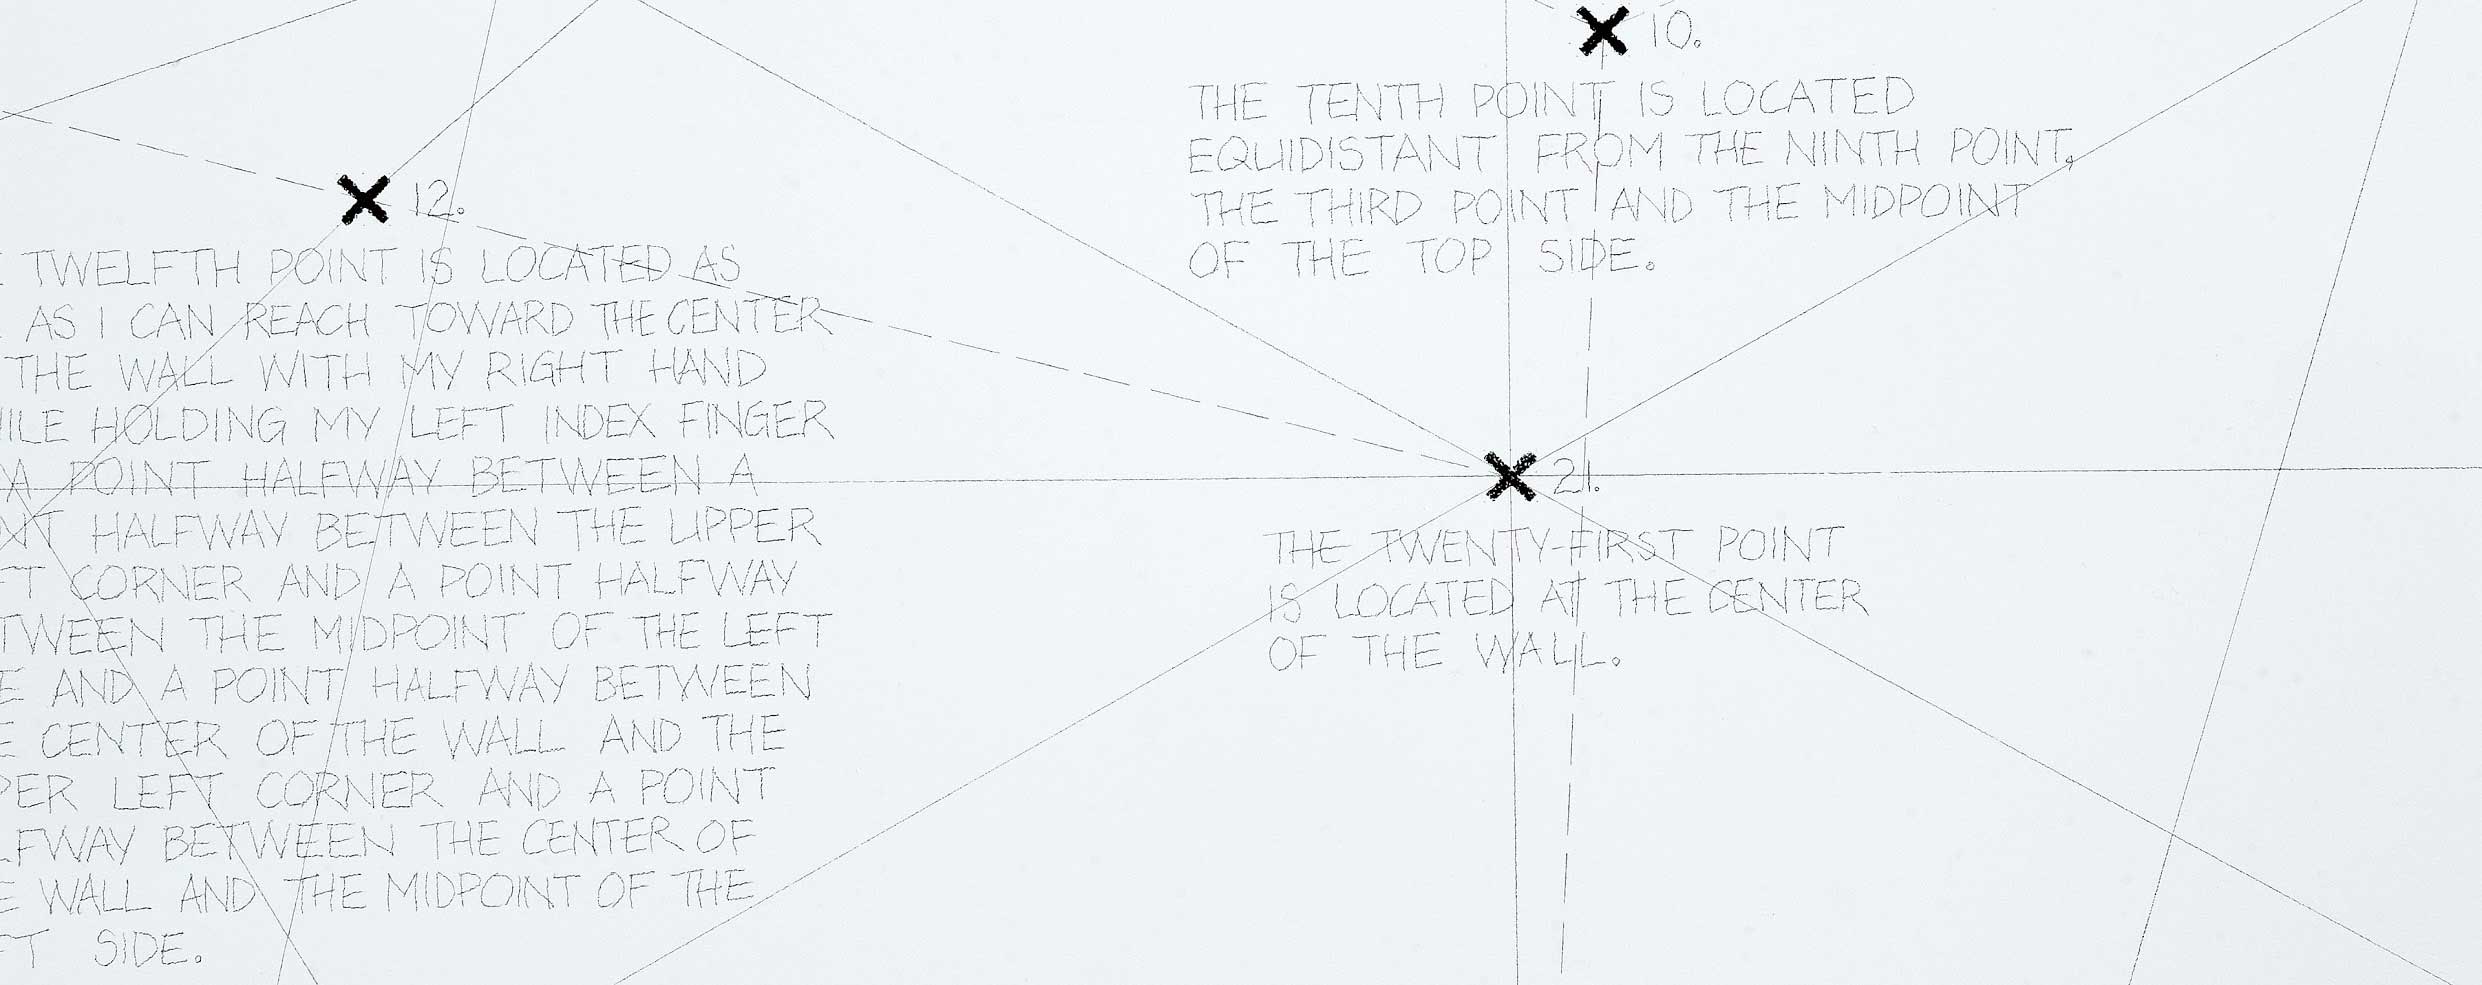 12.
E TWELFTH POINT IS LOCATED AS
AS I CAN REACH TOWARD THE CENTER
THE WALL WITH MY RIGHT HAND
ILE HOLDING MY LEFT INDEX FINGER
A POINT HALFWAY BETWEEN A
NT HALFWAY BETWEEN THE UPPER
FT CORNER AND A POINT HALFWAY
TWEEN THE MIDPOINT OF THE LEFT
E AND A POINT HALFWAY BETWEEN
E CENTER OF THE WALL AND THE
PER LEFT CORNER AND A POINT
LFWAY BETWEEN THE CENTER OF
E WALL AND THE MIDPOINT OF THE
FT SIDE.
10.
THE TENTH POINT IS LOCATED
EQUIDISTANT FROM THE NINTH POINT,
THE THIRD POINT AND THE MIDPOINT
OF THE TOP SIDE.
21.
THE TWENTY-FIRST POINT
IS LOCATED AT THE CENTER
OF THE WALL.